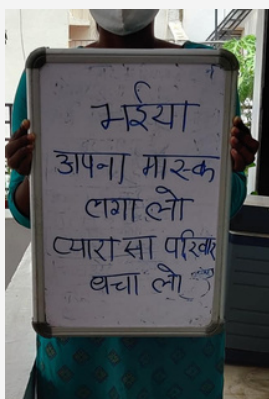 भईया
अपना मास्क
लगा लो
प्यारा सा परिवार
बचा लो